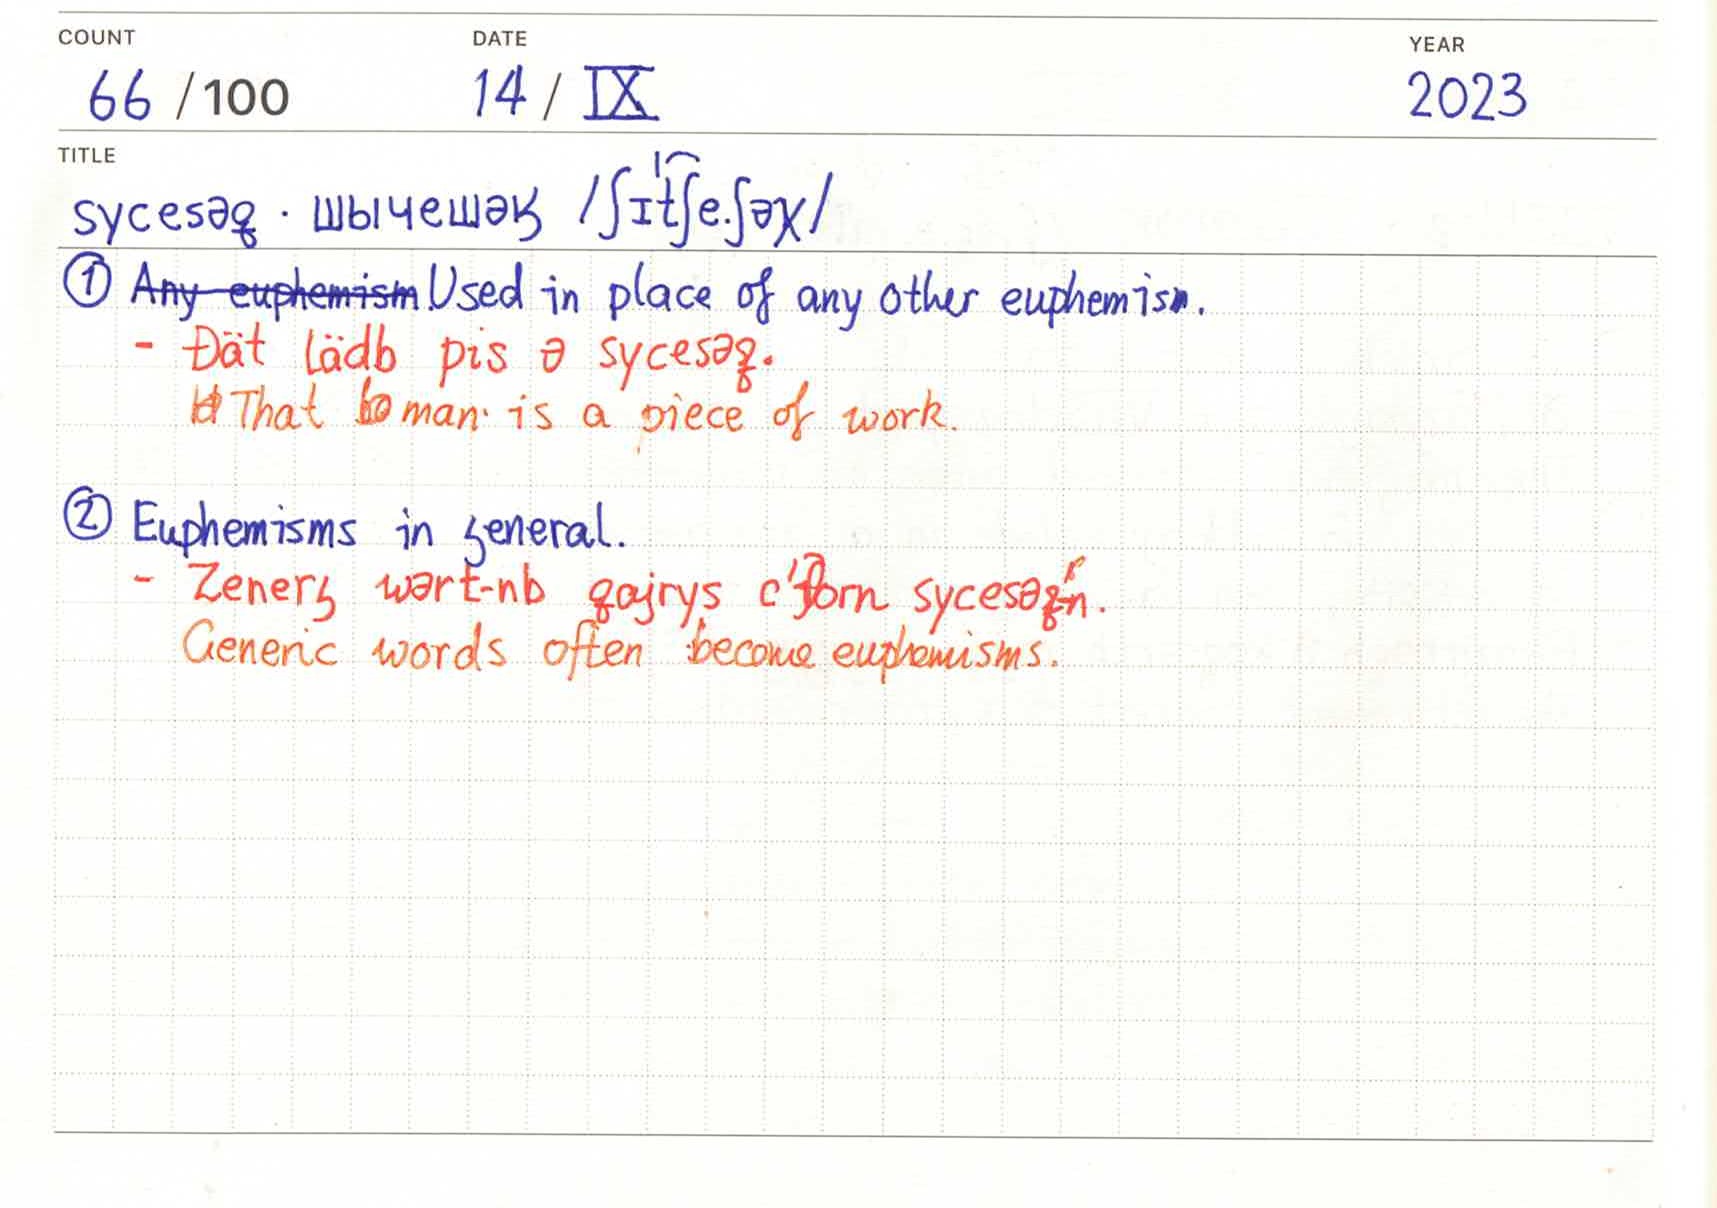 COUNT DATE YEAR
66 /100 14 / IX 2023
TITLE
sycesəq · шычешәԟ /ʃɪˈt͡ʃe.ʃəχ/
① Any euphemism Used in place of any other euphemism.
- Đät lädb pis ə sycesəq.
That man is a piece of work.
② Euphemisms in general.
- wərt-nb qajrys sycesəq-n.
Generic words often become euphemisms.